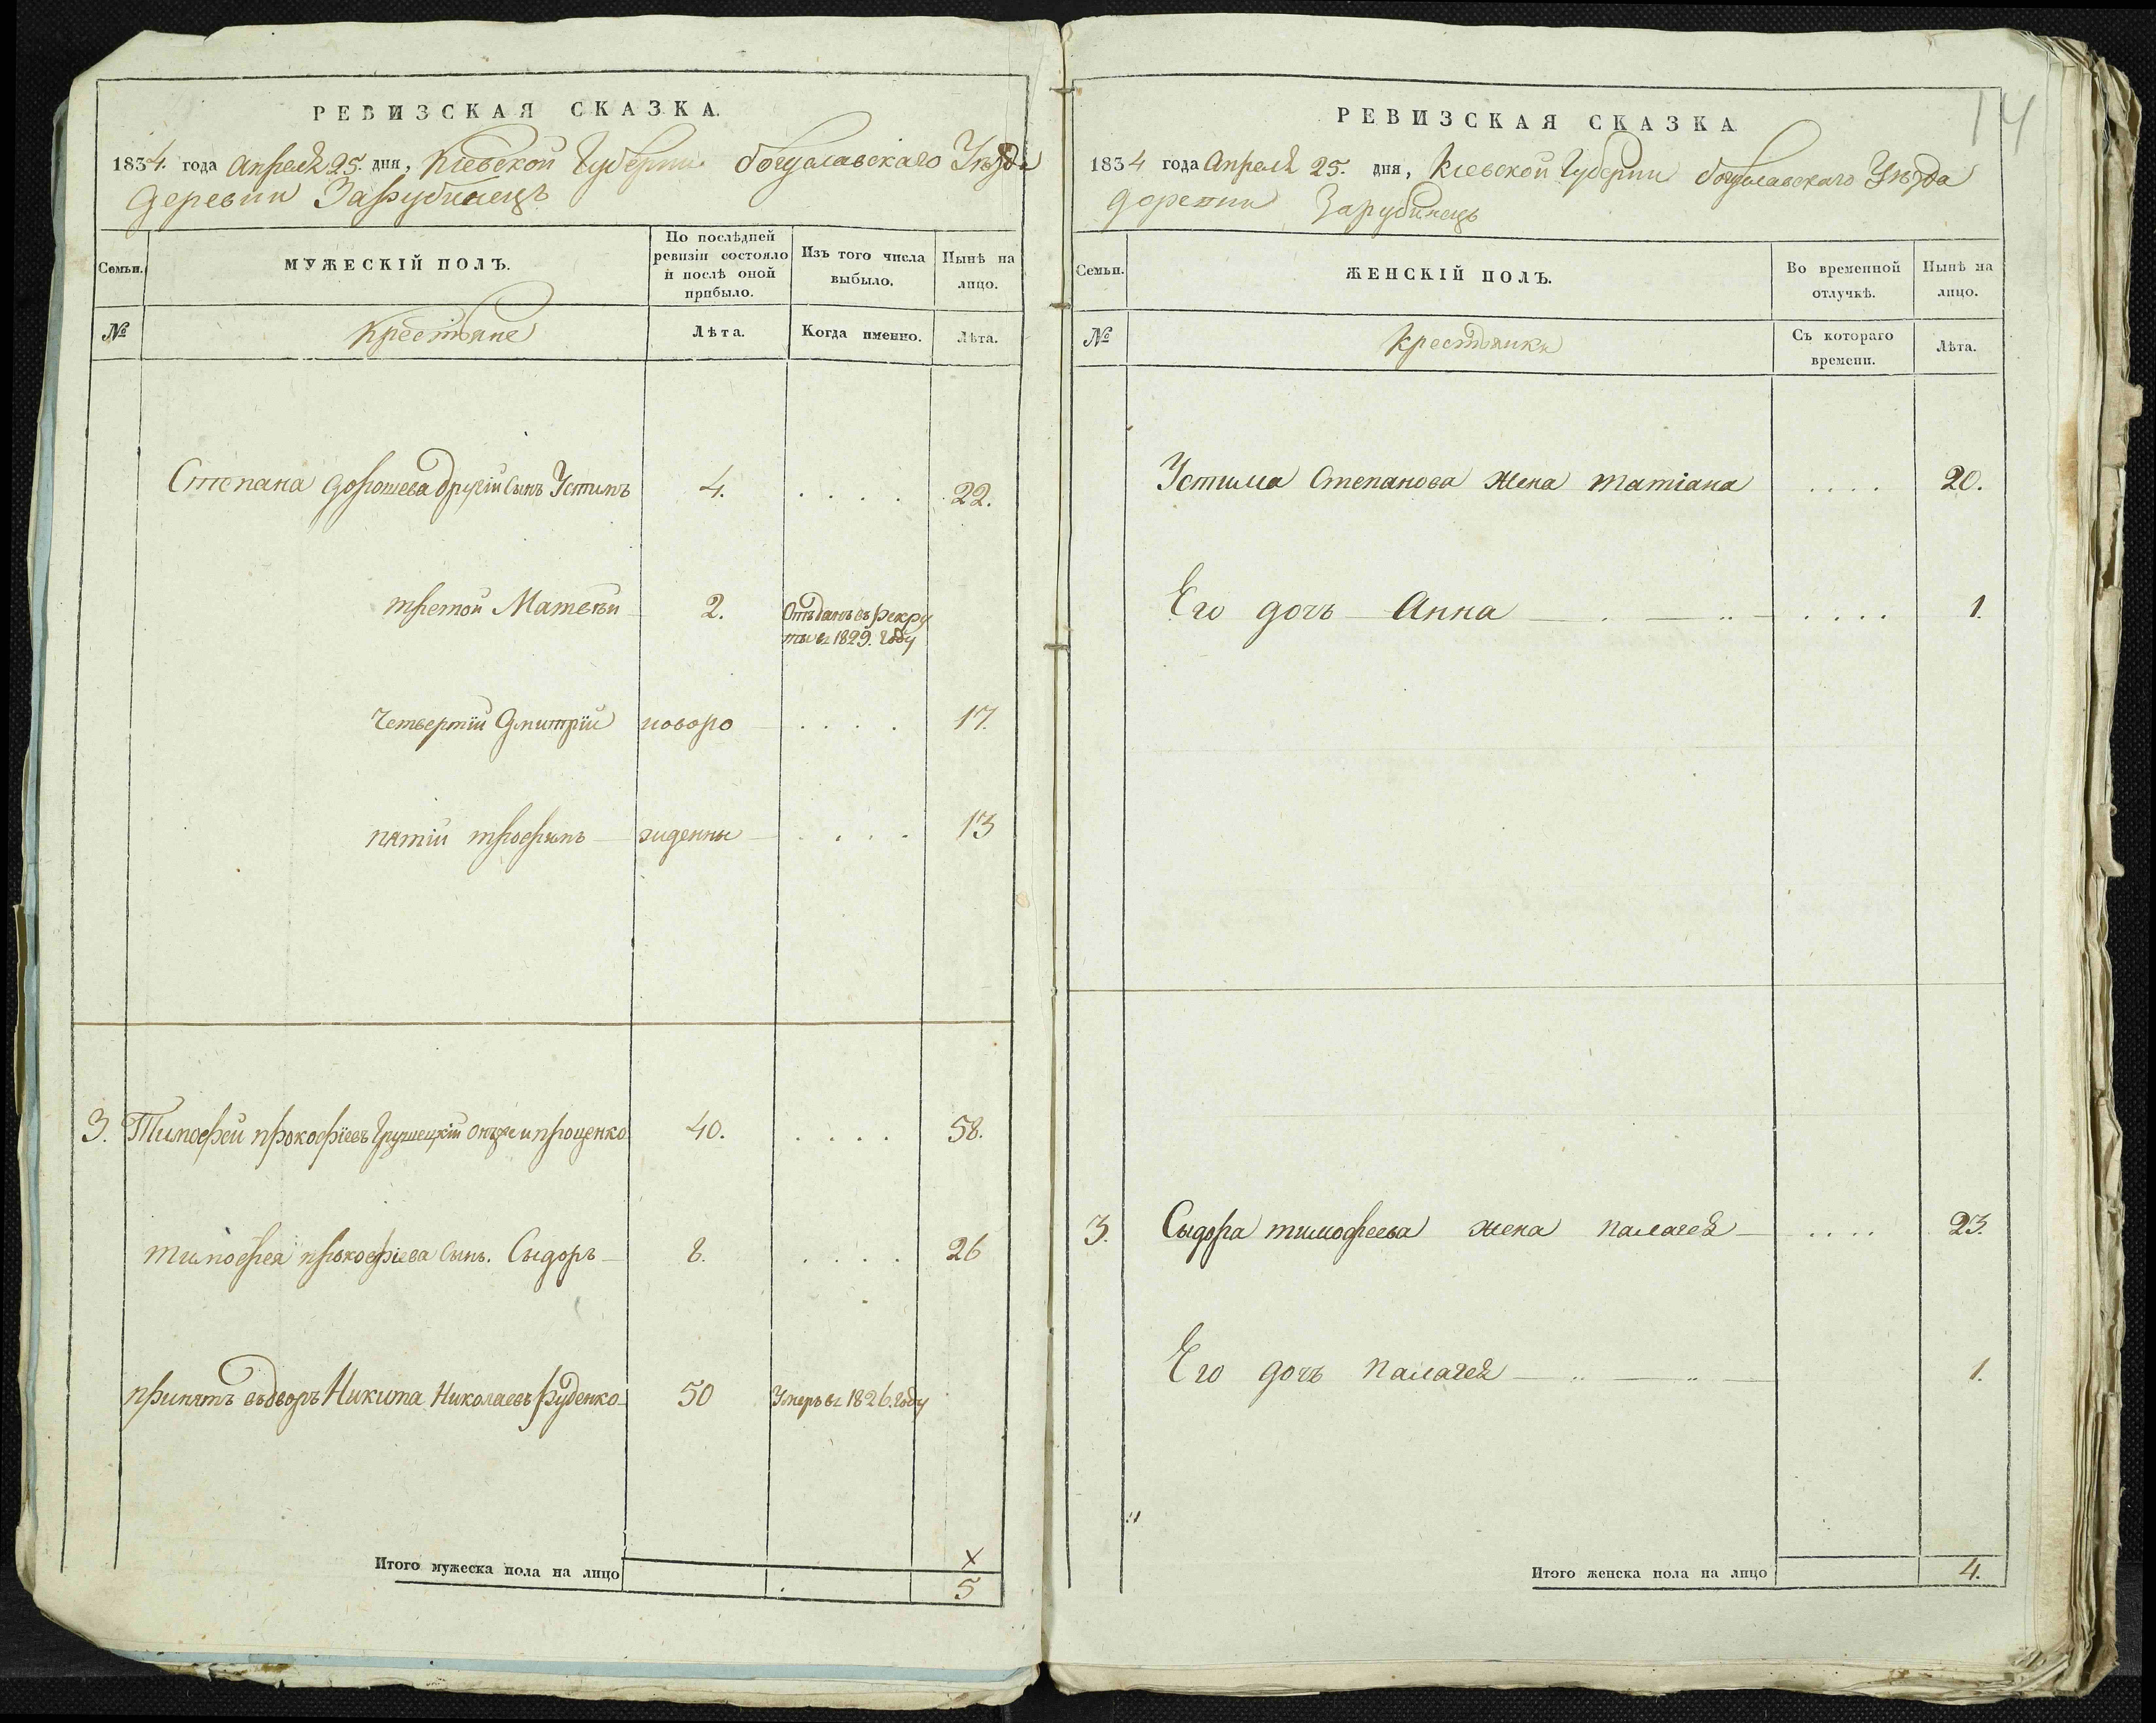 РЕВИЗСКАЯ СКАЗКА.
1834. года Апреля 25. дня, Кіевской Губерніи богуславскаго Уѣзда
деревни Зарубинецъ
Семьи.
МУЖЕСКІЙ ПОЛЪ.
По послѣдней
ревизіи состояло
и послѣ оной
прибыло.
Изъ того числа
выбыло.
Нынѣ на
лицо.
№
Крестьяне
Лѣта.
Когда именно.
Лѣта.
Степана дорошева другій сынъ Устинъ 4. . . . . 22.
третой Матвѣй 2. Отъданъ въ рекру
ты въ 1829. Году
Четвертій Дмитрій новоро . . . 17.
пятій трофимъ жиденны . . . 13
3. Тимофей прокофіевъ Грушецкій онъже и проценко 40. . . . . 58.
тимофея прокофіева сынъ. Сыдоръ 8. . . . . 26
принятъ въдворъ Никита Николаевъ Руденко 50 Умеръ въ 1826. Году
Итого мужеска пола на лицо
х
5
14
РЕВИЗСКАЯ СКАЗКА
1834 года Апреля 25. дня, Кіевской Губерніи богуславскаго Уѣзда
деревни Зарубинецъ
Семьи.
ЖЕНСКІЙ ПОЛЪ.
Во временной
отлучкѣ.
Нынѣ на
лицо.
№
Крестьянки
Съ котораго
времени.
Лѣта.
Устима Степанова жена татіана . . . . 20.
Его дочь Анна . . . . 1.
3. Сыдора тимофеева жена палагея . . . . 23.
Его дочь палагея 1.
Итого женска пола на лицо 4.